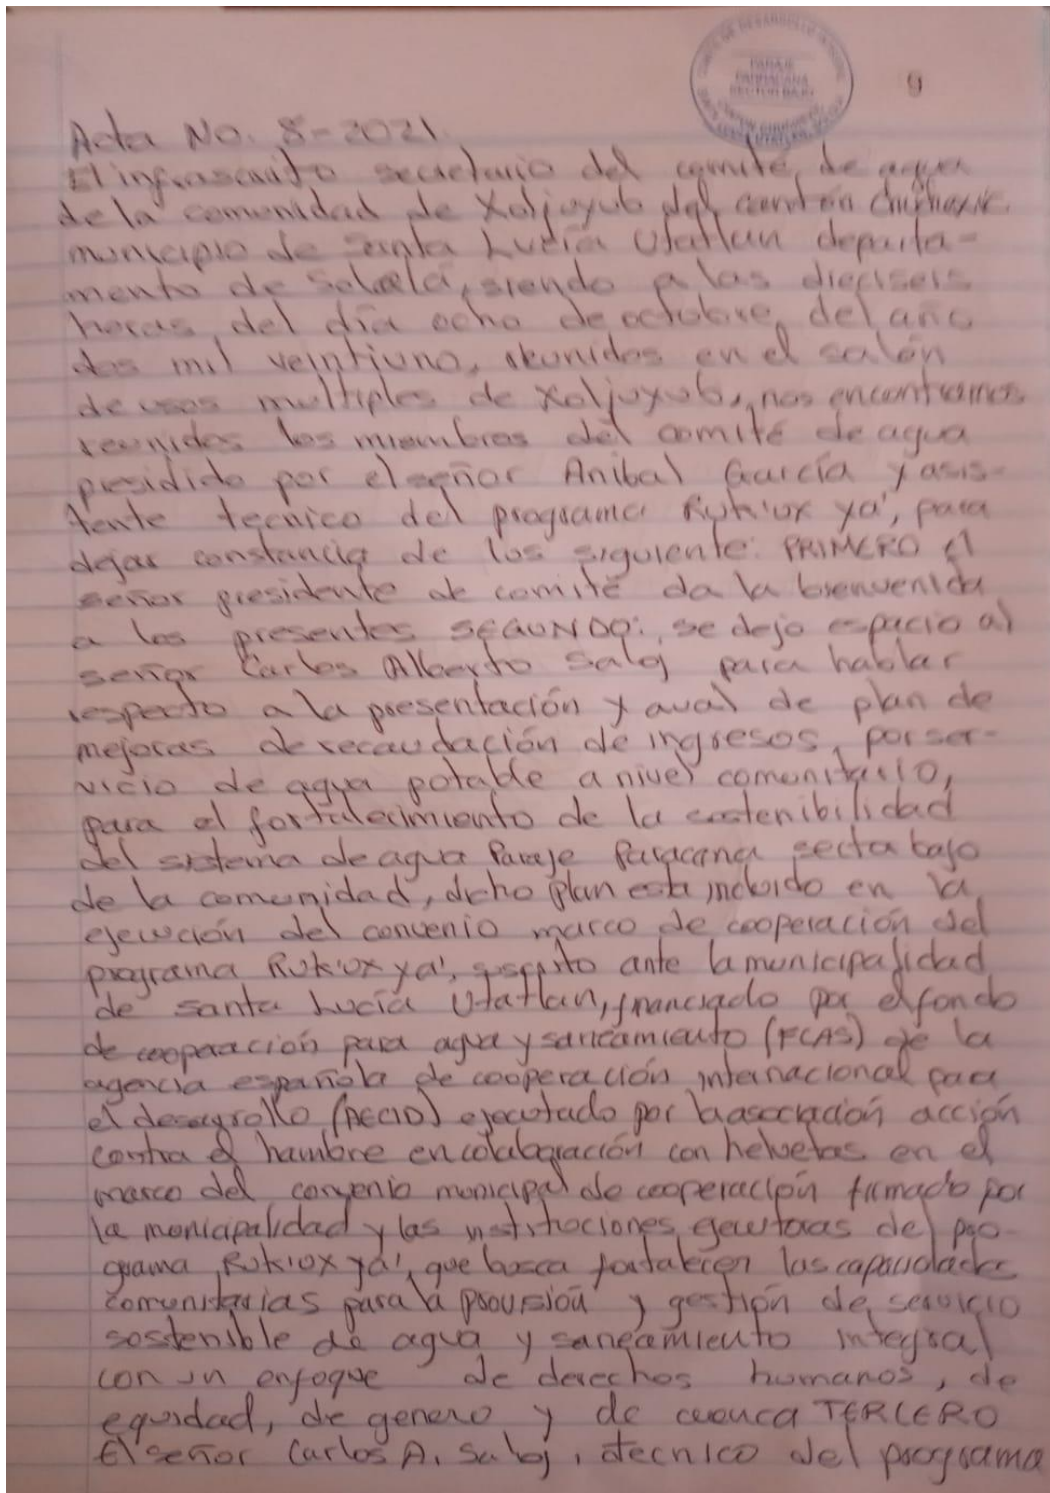 COMITÉ DE DESARROLLO
PARAJE
PARRACANA
SECTOR BAJO
9
Acta No. 8-2021.
El infrascrito secretario del comité de agua
de la comunidad de Xoljuyub del cantón Chuchexic
municipio de Santa Lucía Utatlan departa-
mento de Sololá, siendo a las dieciseis
horas del día ocho de octubre del año
dos mil veintiuno, reunidos en el salón
de usos multiples de Xoljuyub, nos encontramos
reunidos los miembros del comité de agua
presidido por el señor Anibal García y asis-
tente tecnico del programa Rukiux ya', para
dejar constancia de los siguiente: PRIMERO el
señor presidente de comité da la bienvenida
a los presentes SEGUNDO: se dejo espacio al
señor Carlos Alberto Saloj para hablar
respecto a la presentación y aval de plan de
mejoras de recaudación de ingresos, por ser-
vicio de agua potable a nivel comunitario,
para el fortalecimiento de la sostenibilidad
del sistema de agua Paraje Paracana secta bajo
de la comunidad, dicho plan esta incluido en la
ejecución del convenio marco de cooperación del
programa Rukiux ya', suscrito ante la municipalidad
de santa Lucía Utatlan, financiado por el fondo
de cooperación para agua y saneamiento (FCAS) de la
agencia española de cooperación internacional para
el desarrollo (AECID) ejecutado por la asociación acción
contra el hambre en colaboración con helvetas en el
marco del convenio municipal de cooperación firmado por
la municipalidad y las instituciones ejecutoras del pro-
grama Rukiux ya', que busca fortalecer las capacidades
comunitarias para la provisión y gestión de servicio
sostenible de agua y saneamiento integral
con un enfoque de derechos humanos, de
equidad, de genero y de cuenca TERCERO
El señor Carlos A. Saloj, tecnico del programa